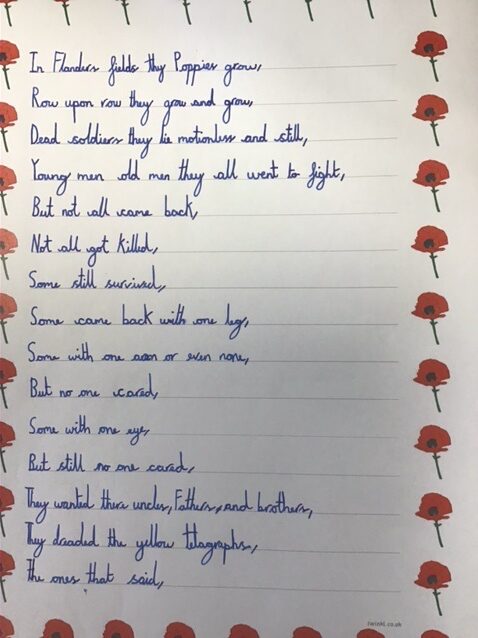 In Flanders fields thy Poppies grow,
Row upon row they grow and grow,
Dead soldiers they lie motionless and still,
Young men old men they all went to fight,
But not all came back,
Not all got killed,
Some still survived,
Some came back with one leg,
Some with one arm or even none,
But no one cared,
Some with one eye,
But still no one cared,
They wanted there uncles, Fathers, and brothers,
They dreaded the yellow telagraphs,
The ones that said,
twinkl.co.uk